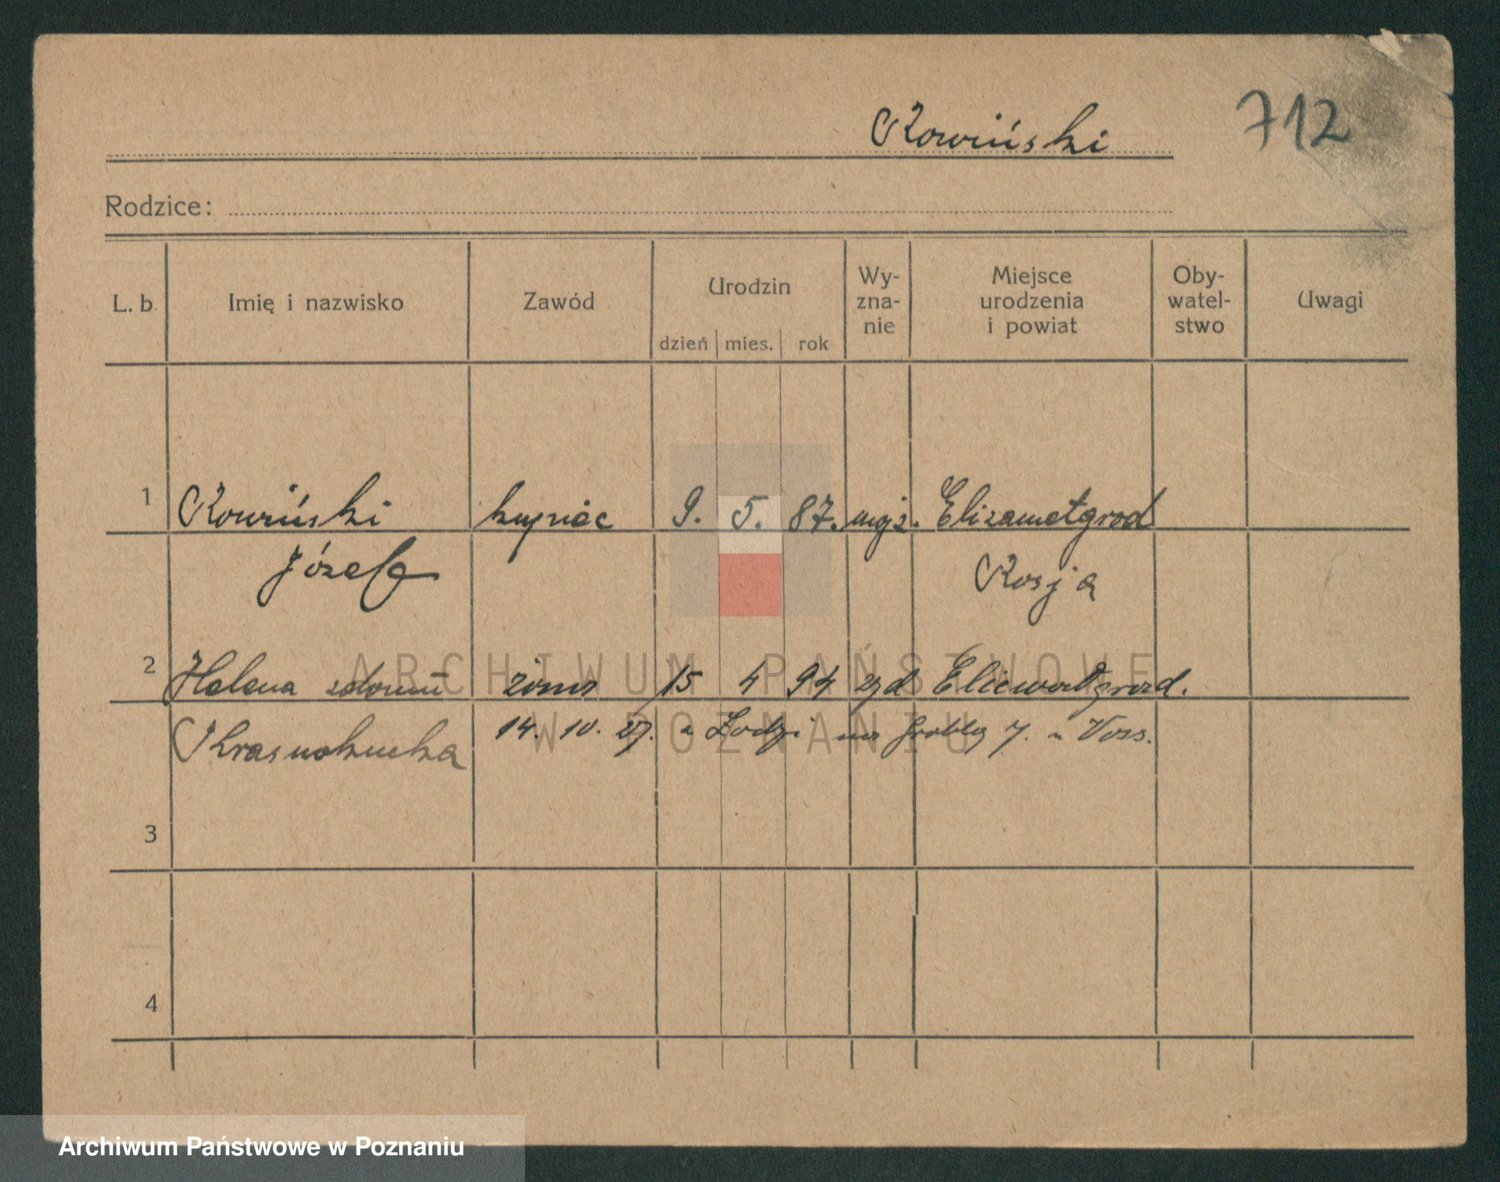 Rowiński 712
Rodzice:
L. b. Imię i nazwisko Zawód Urodzin dzień mies. rok Wy-zna-nie Miejsce urodzenia i powiat Oby-watel-stwo Uwagi
1 Rowiński kupiec 9. 5. 87. mojż. Elizawetgrod
Józef Rosja
2 Helena z domu żona 15 4 94 żyd
Krasnokucka 14. 10. 27. z Łodzi na Grobla 7. u Voss.
3
4
ARCHIWUM PAŃSTWOWE
W POZNANIU
Archiwum Państwowe w Poznaniu